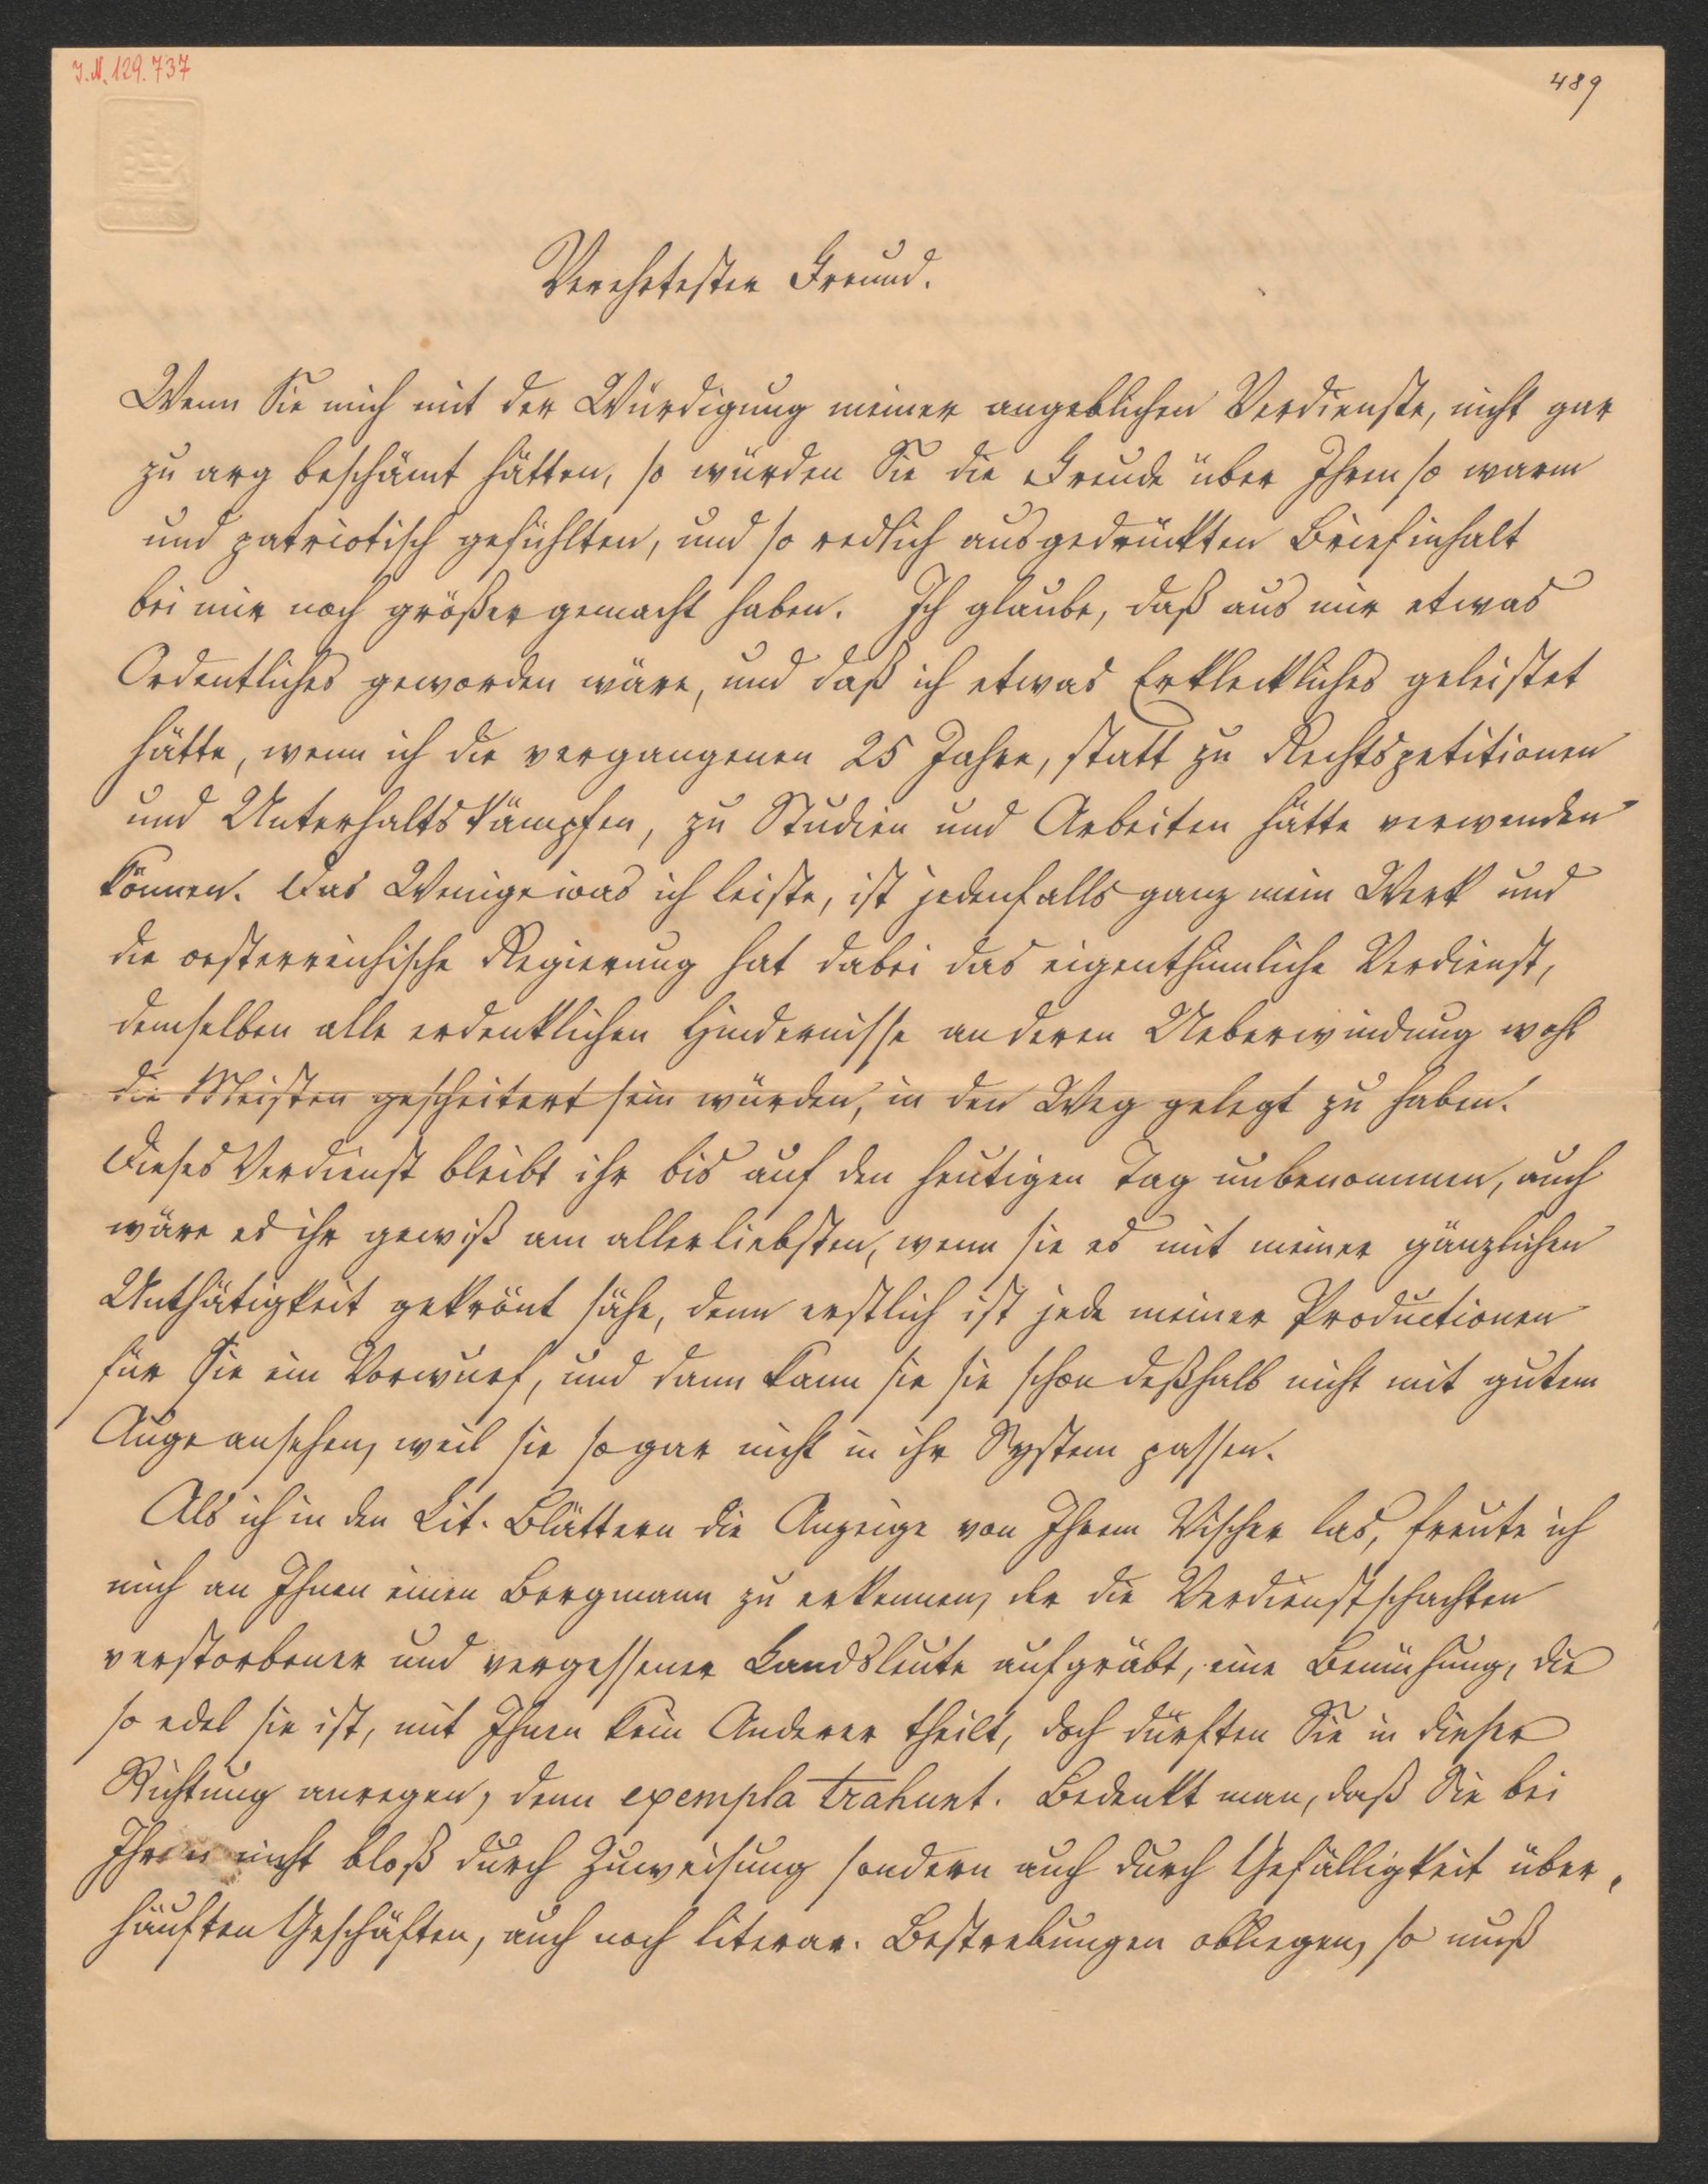 I.N. 129.737
489
Verehrtester Freund.
Wenn Sie mich mit der Würdigung meiner angeblichen Verdienste, nicht gar
zu arg beschämt hätten, so würden Sie die Freude über Ihren so warm
und patriotisch gefühlten, und so redlich ausgedrückten Briefinhalt
bei mir noch größer gemacht haben. Ich glaube, daß aus mir etwas
Ordentliches geworden wäre, und daß ich etwas Erkleckliches geleistet
hätte, wenn ich die vergangenen 25 Jahre, statt zu Rechtspetitionen
und Unterhaltskämpfen, zu Studien und Arbeiten hätte verwenden
können. Das Wenige was ich leiste, ist jedenfalls ganz mein Werk und
die oesterreichische Regierung hat dabei das eigenthümliche Verdienst,
demselben alle erdenklichen Hindernisse an deren Ueberwindung wohl
die Meisten gescheitert sein würden, in den Weg gelegt zu haben.
Dieses Verdienst bleibt ihr bis auf den heutigen Tag unbenommen, auch
wäre es ihr gewiß am allerliebsten, wenn sie es mit meiner gänzlichen
Unthätigkeit gekrönt sähe, denn erstlich ist jede meiner Productionen
für Sie ein Vorwurf, und dann kann sie sie schon deßhalb nicht mit gutem
Auge ansehen, weil sie so gar nicht in ihr System passen.
Als ich in den Lit. Blättern die Anzeige von Ihrem Vischer las, freute ich
mich an Ihnen einen Bergmann zu erkennen, der die Verdienstschachten
verstorbener und vergessener Landsleute aufgräbt, eine Bemühung, die
so edel sie ist, mit Ihnen kein Anderer theilt, doch dürften Sie in dieser
Richtung anregen, denn exempla trahunt. Bedenkt man, daß Sie bei
Ihren nicht bloß durch Zuweisung sondern auch durch Gefälligkeit über-
häuften Geschäften, auch noch literar. Bestrebungen obliegen, so muß